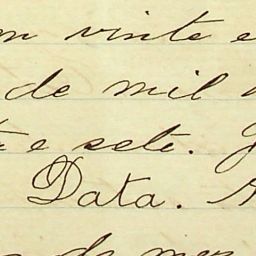 vinte e
de mil
e sete.
Data. A
de mez